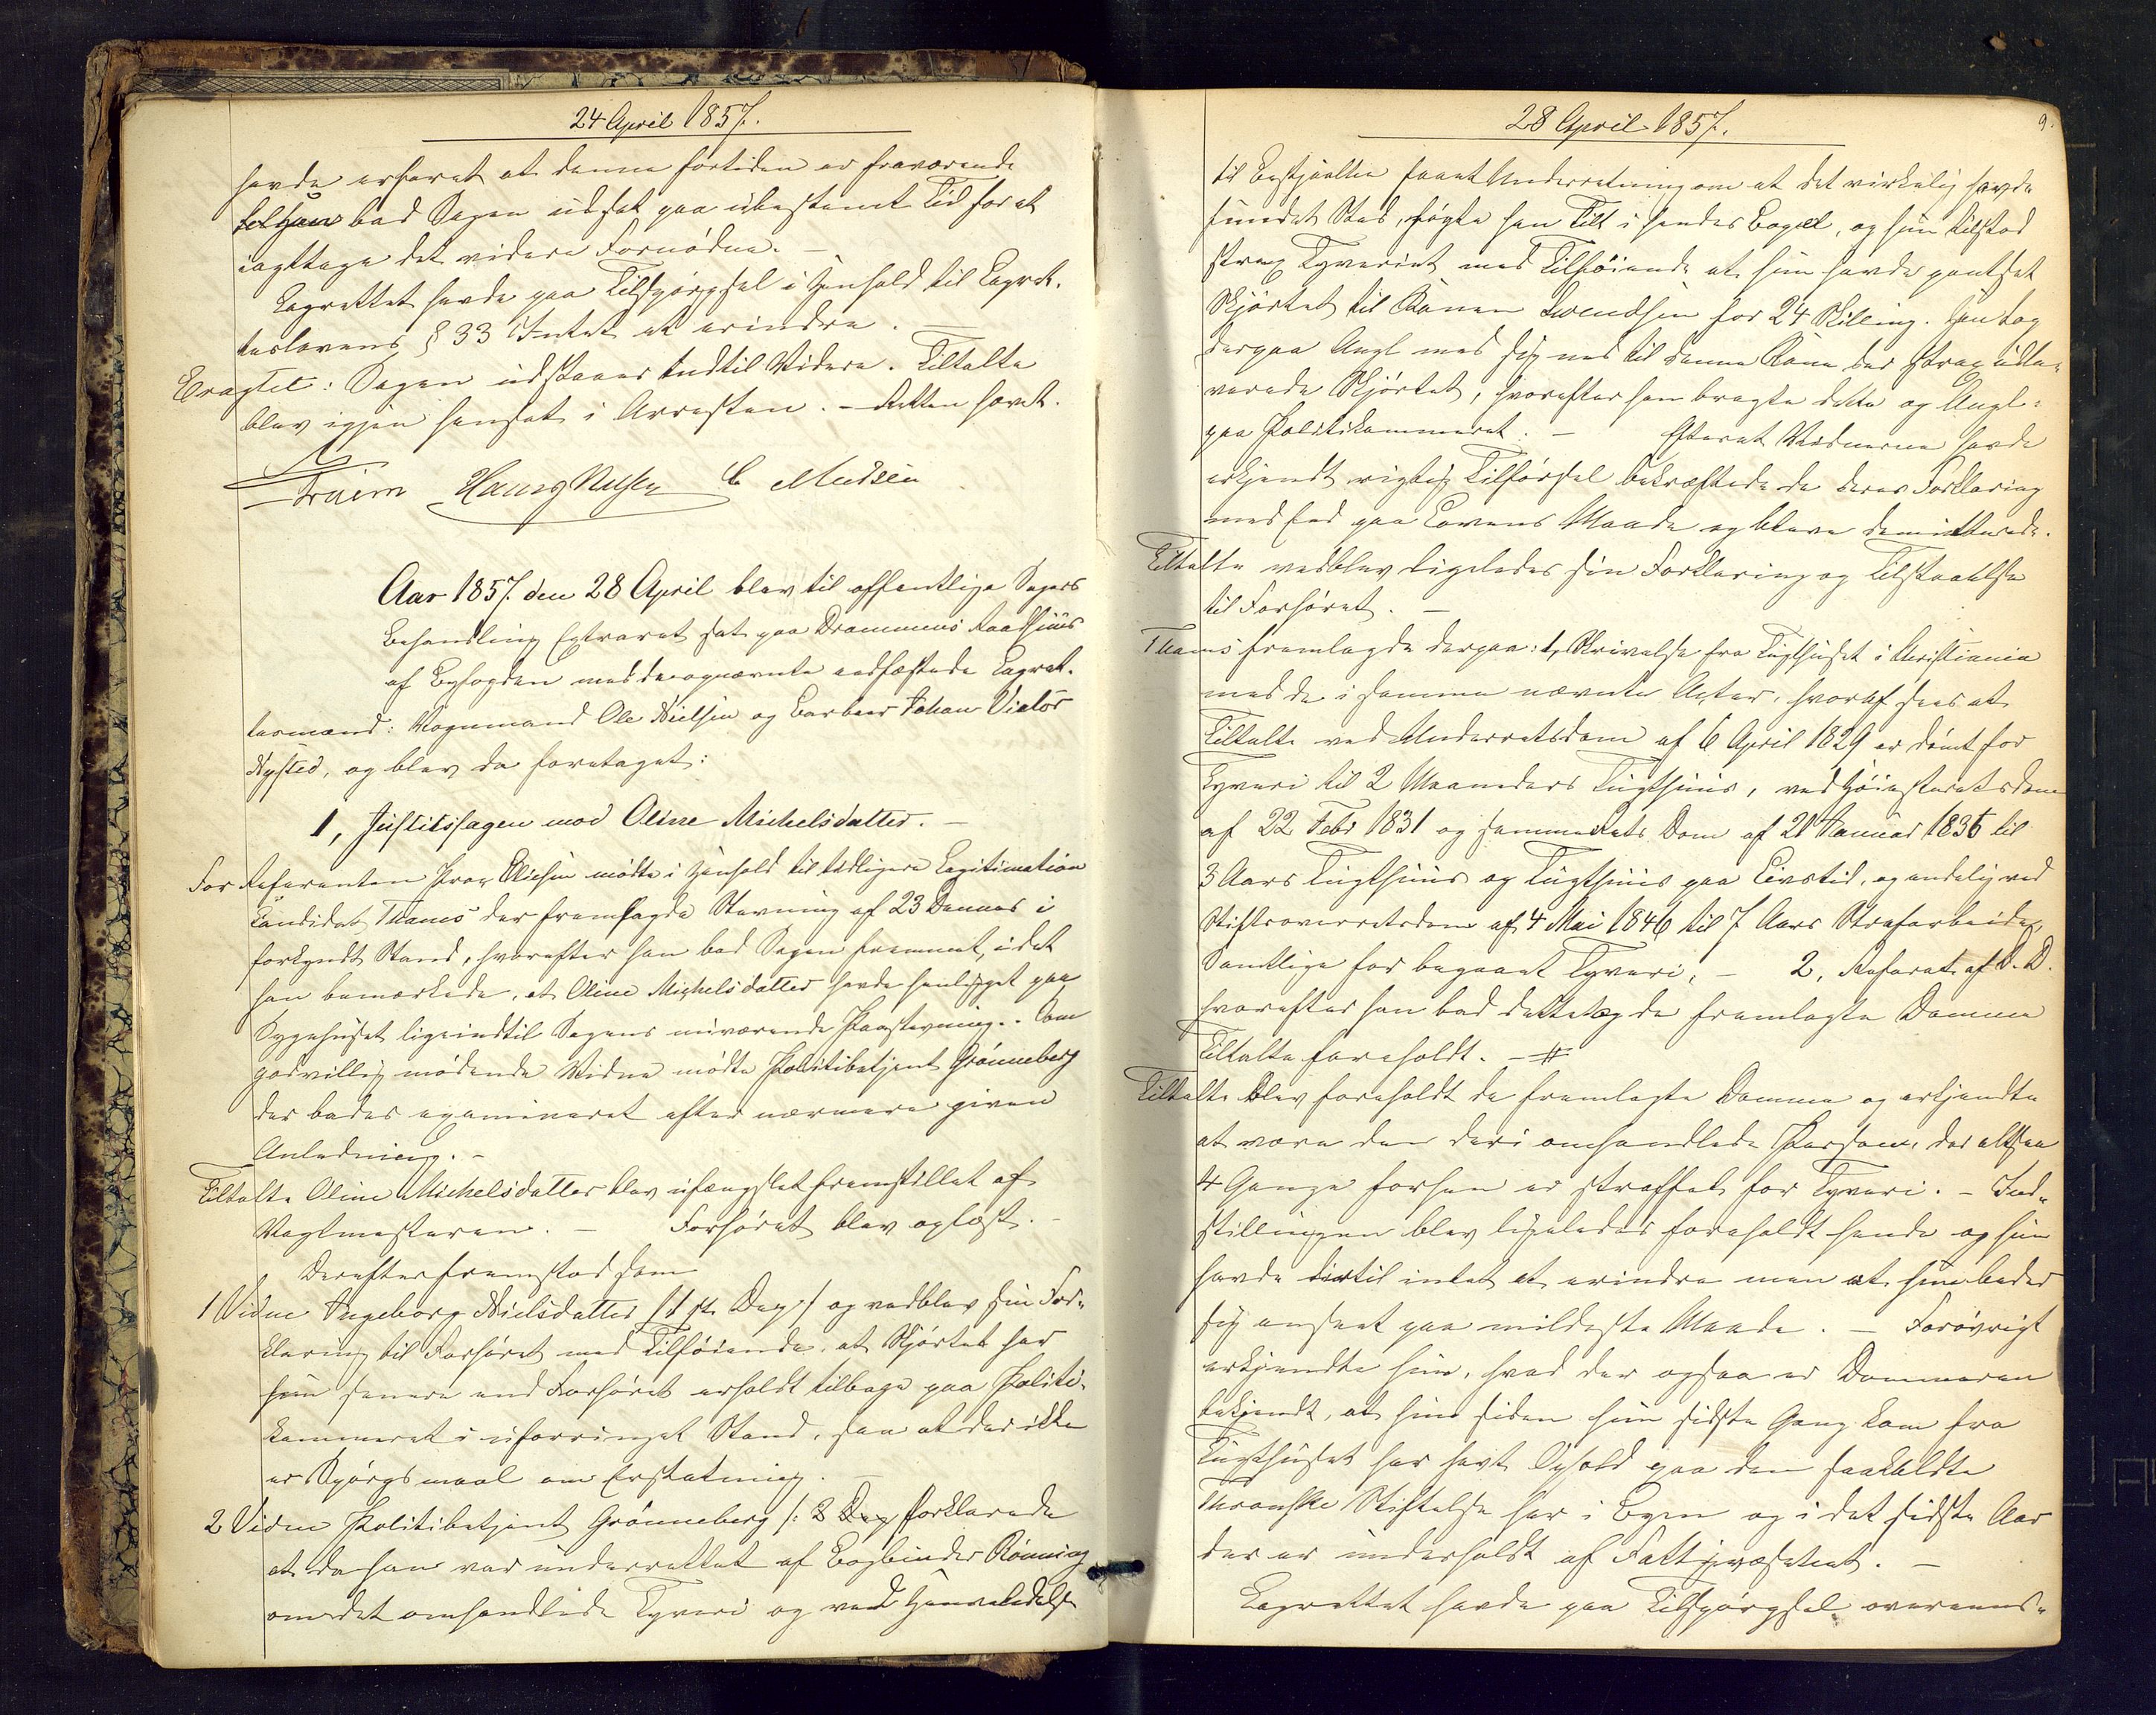 24 April 1857.
havde erfaret at denne fortiden er fraværende
hvorfor han bad Sagen udsat paa ubestemt Tid for at
iagttage det videre Fornødne. —
Lagrettet havde paa Tilspørgsel i Henhold til Lagret-
teslovens § 33 Intet at erindre.
Eragtet: Sagen udstaaer indtil Videre. Tiltalte
blev igjen hensat i Arresten. — Retten hævet.
Hans Nilsen C Madsen
Aar 1857. den 28 April blev til offentlige Sagers
Behandling Extraret sat paa Drammens Raadhuus
af Byfogden med de opnævnte eedfæstede Lagret-
tesmænd: Vognmand Ole Nielsen og Barbeer Johan Victor
Nysted, og blev da foretaget:
1, Justitssagen mod Oline Michelsdatter. —
For Referenten Pror Ellefsen mødte i Henhold til tidligere Legitimation
Candidat Thams der fremlagde Stevning af 23 Dennes i
forkyndt Stand, hvorefter han bad Sagen fremmet, idet
han bemærkede, at Oline Michelsdatter havde henligget paa
Sygehuset ligeindtil Sagens nuværende Paastevning. Som
godvillig mødende Vidne mødte Politibetjent Grønneberg
der bades examineret efter nærmere given
Anledning. —
Tiltalte Oline Michelsdatter blev ufængslet fremstillet af
Vagtmesteren. — Forhøret blev oplæst. —
Derefter fremstod som
1 Vidne Ingeborg Nielsdatter /: 1ste Dag :/ og vedblev sin For-
klaring til Forhøret med Tilføiende, at Skjørtet har
hun senere end Forhøret erholdt tilbage paa Politi-
kammeret i uforringet Stand, saa at der ikke
er Spørgsmaal om Erstatning.
2 Vidne Politibetjent Grønneberg /: 2 Dag forklarede
at da han var underrettet af Bogbinder Rønning
om det omhandlede Tyveri og ved Henvendelse
28 April 1857.
9.
til Bestjaalne faaet Underretning om at det virkelig havde
fundet Sted, søgte han Tilt i hendes Logis, og hun tilstod
strax Tyveriet med Tilføiende at hun havde pantsat
Skjørtet til Konen Svendsen for 24 Skilling. Han tog
derpaa Angl med sig ned til denne Kone der strax udle-
verede Skjørtet, hvorefter han bragte dette og Angl:
paa Politikammeret. — Efterat Vidnerne havde
erkjendt rigtig Tilførsel bekræftede de deres Forklaring
med Eed paa Lovens Maade og bleve demitterede.
Tiltalte vedblev ligeledes sin Forklaring og Tilstaaelse
til Forhøret. —
Thams fremlagde derpaa: 1, Skrivelse fra Tugthuset i Christiania
med de i samme nævnte Acter, hvoraf sees at
Tiltalte ved Underretsdom af 6 April 1829 er dømt for
Tyveri til 2 Maaneders Tugthuus, ved Høiesteretsdom
af 22 Febr 1831 og sammeRets Dom af 21 Januar 1836 til
3 Aars Tugthuus og Tugthuus paa Livstid, og endelig ved
Stiftsoverretsdom af 4 Mai 1846 til 7 Aars Strafarbeide,
Samtlige for begaaet Tyveri; — 2, Referat af D. D.
hvorefter han bad dette og de fremlagte Domme
Tiltalte foreholdt. — #
Tiltalte blev foreholdt de fremlagte Domme og erkjendte
at være den deri omhandlede Person, der altsaa
4 Gange forhen er straffet for Tyveri. — Ind-
stillingen blev ligeledes foreholdt hende og hun
havde dertil intet at erindre men at hun beder
sig anseet paa mildeste Maade. — Forøvrigt
erkjendte hun, hvad der ogsaa er Dommeren
bekjendt, at hun siden hun sidste Gang kom fra
Tugthuset har havt Ophold paa den saakaldte
Thronske Stiftelse her i Byen og i det sidste Aar
der er underholdt af Fattigvæsenet. —
Lagrettet havde paa Tilspørgsel overeens-